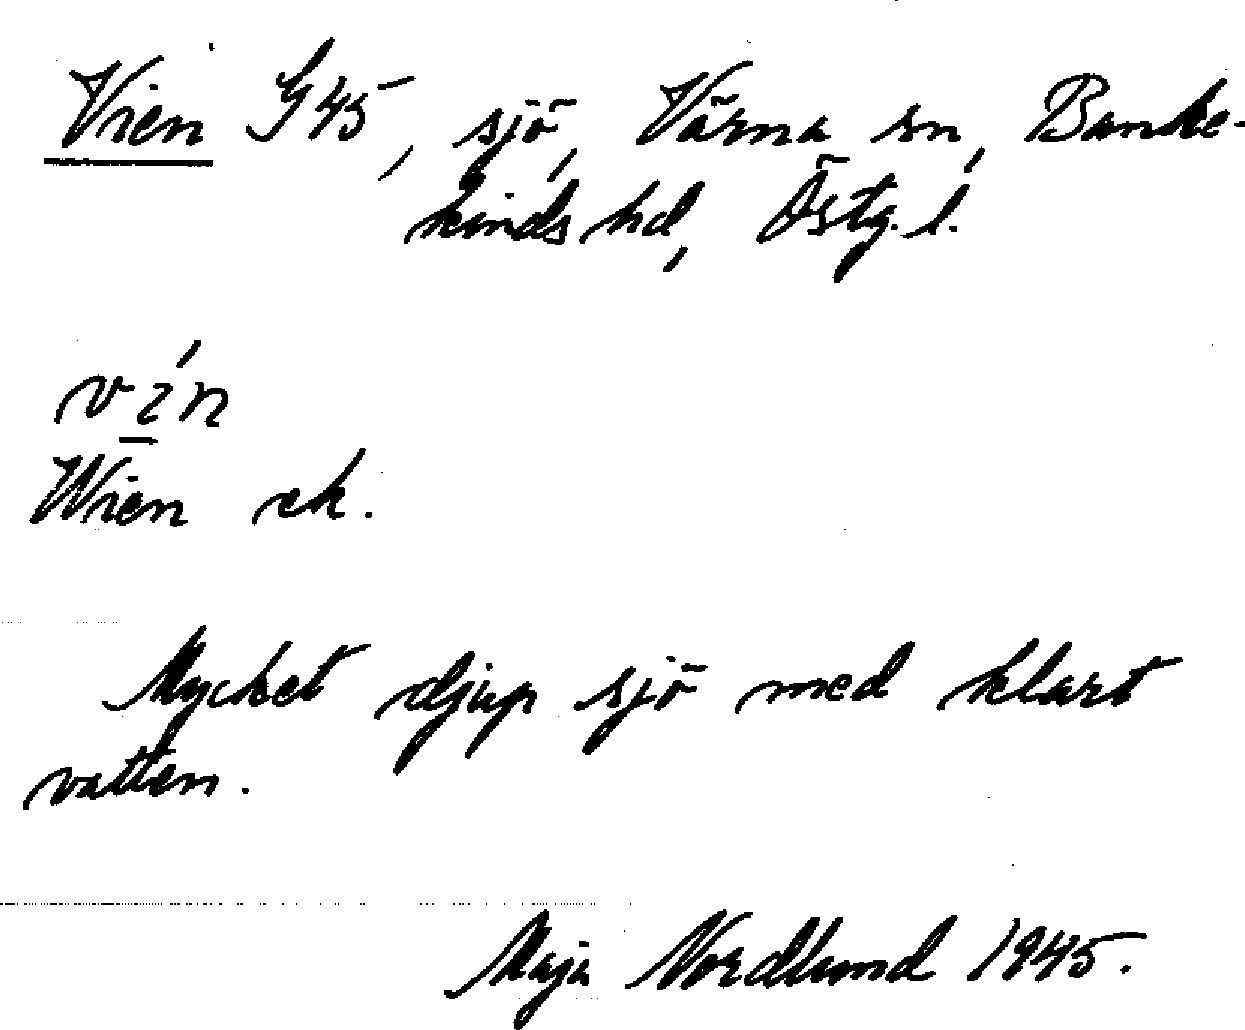 Vien G45, sjö, Värna sn, Banke-
kinds hd, Östg. l.
vín
Wien ek.
Mycket djup sjö med klart
vatten.
Maja Nordlund 1945.